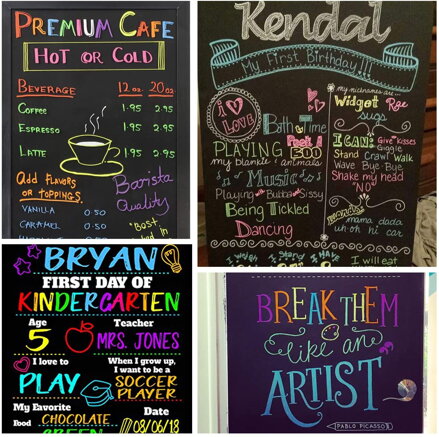 PREMIUM CAFE
HOT OR COLD
BEVERAGE 12 oz 20 oz
COFFEE 1.95 2.95
ESPRESSO 1.95 2.95
LATTE 1.95 2.95
Add FLAVORS
OR TOPPINGS
VANILLA 0.50
CARAMEL 0.50
Barista
Quality
Kendal
My First Birthday!!!
I
LOVE
Bath Time
Peek A
BOO
PLAYING
my blankie & animals
Music
Playing with Bubba & Sissy
Being Tickled
Dancing
my nicknames are...
Widget Rae
Sugs
I CAN: Give Kisses
Giggle
Stand Crawl Walk
Wave Bye-Bye
Shake my head
"NO"
words:
mama dada
uh oh hi car
I will eat
BRYAN
FIRST DAY OF
KINDERGARTEN
Age
5
Teacher
MRS. JONES
I love to
PLAY
When I grow up,
I want to be a
SOCCER
PLAYER
My Favorite
Food CHOCOLATE
GREEN
Date
08/06/18
BREAK THEM
like an
ARTIST
PABLO PICASSO